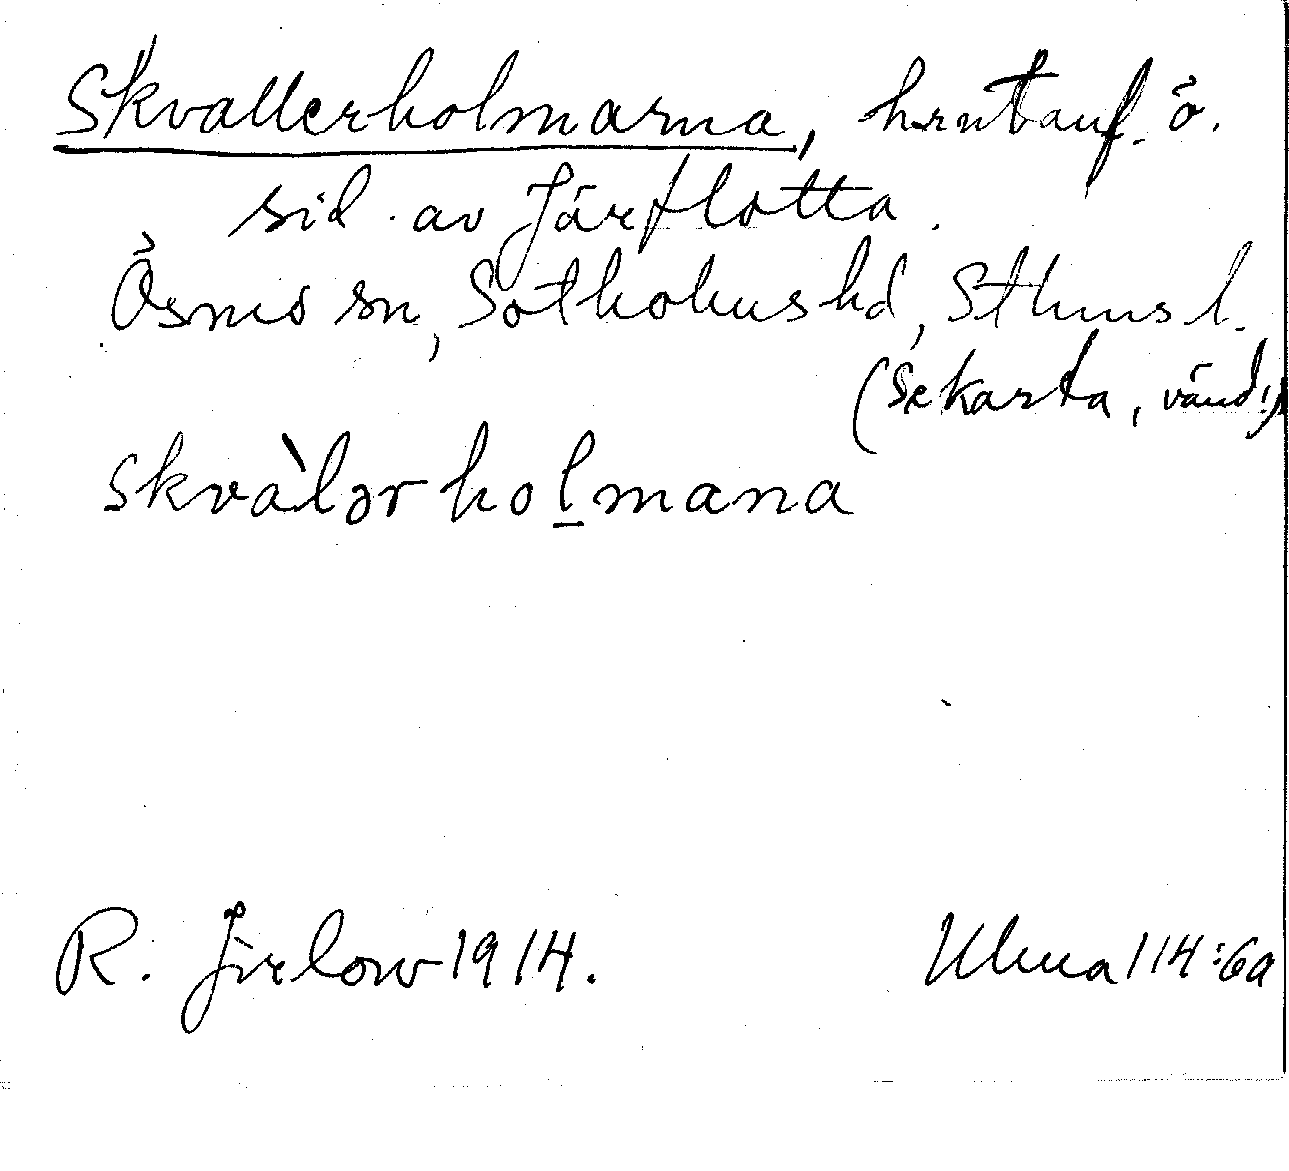 Skvallerholmarna, ö.
sid. av Järflotta.
Ösmo sn, Sotholms hd, Sthms l.
(Se karta, vänd!)
skvàlər holmana
R. Jirlow 1914.
Ulma 114:6a